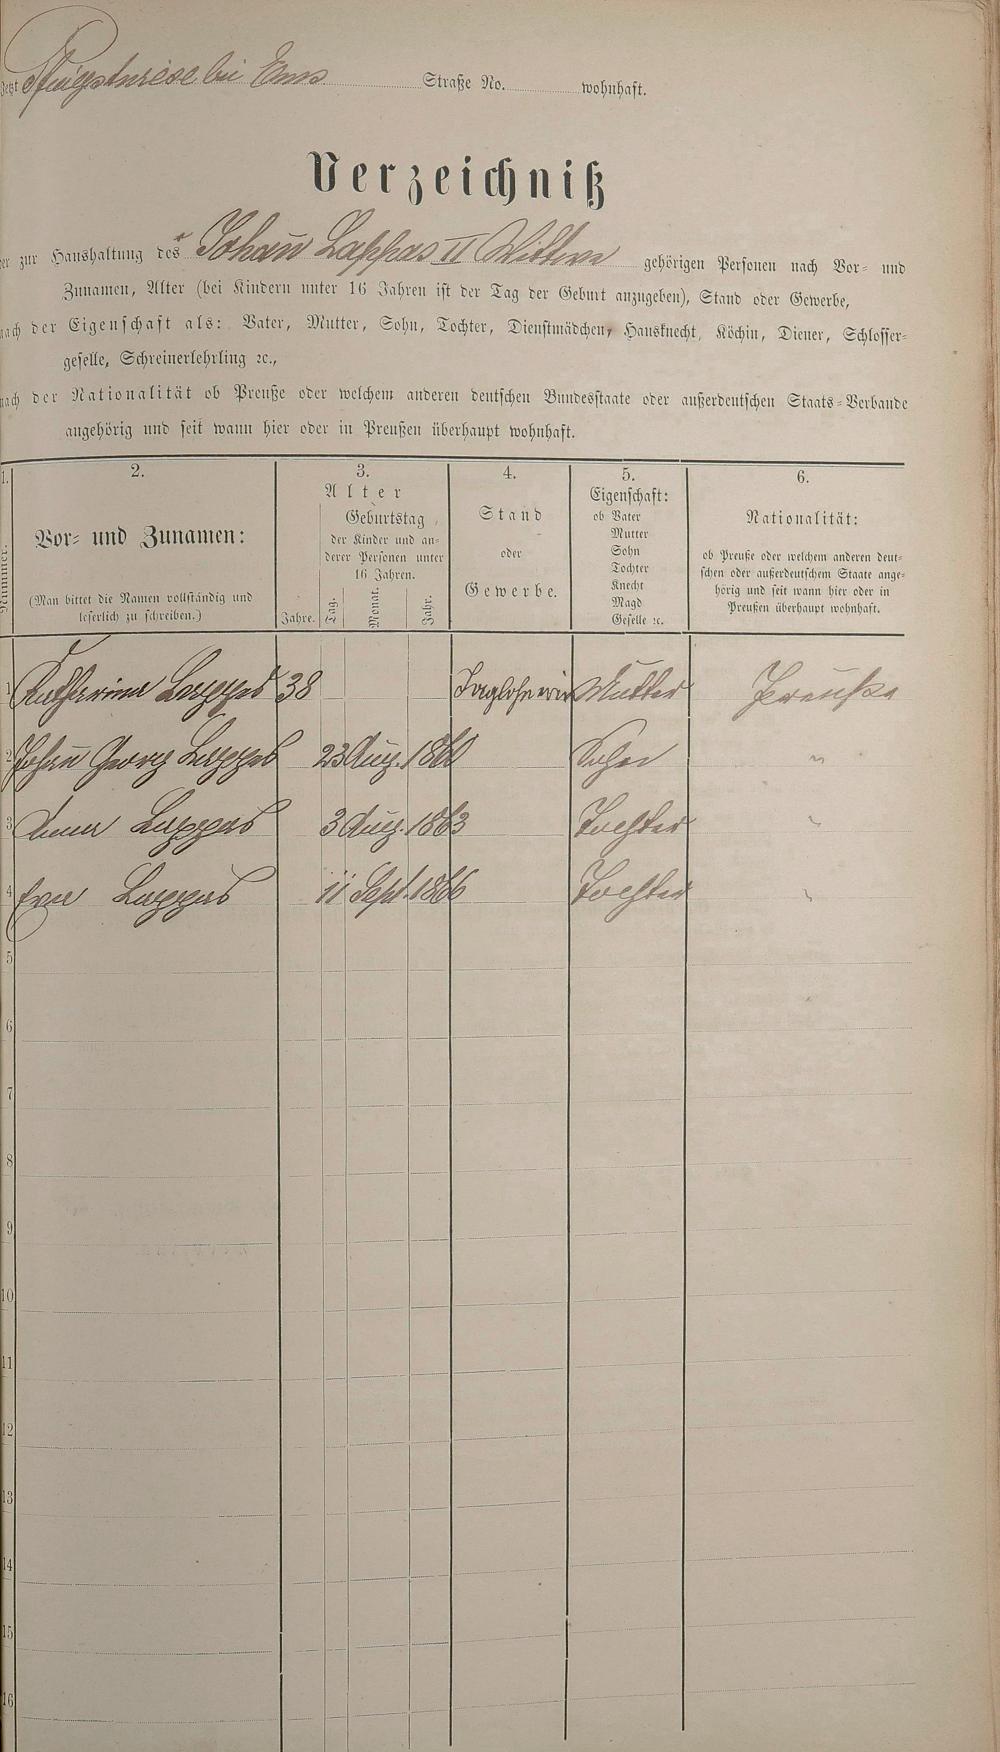 Jetzt Pfingstwiese bei Ems Straße No. wohnhaft.
Verzeichniß
der zur Haushaltung des Johan̄ Lappas II Wittwe gehörigen Personen nach Vor- und
Zunamen, Alter (bei Kindern unter 16 Jahren ist der Tag der Geburt anzugeben), Stand oder Gewerbe,
nach der Eigenschaft als: Vater, Mutter, Sohn, Tochter, Dienstmädchen, Hausknecht, Köchin, Diener, Schlosser-
geselle, Schreinerlehrling ꝛc.,
nach der Nationalität ob Preuße oder welchem anderen deutschen Bundesstaate oder außerdeutschen Staats-Verbande
angehörig und seit wann hier oder in Preußen überhaupt wohnhaft.
1. 2. 3. 4. 5. 6.
Nummer.
Vor- und Zunamen:
(Man bittet die Namen vollständig und
leserlich zu schreiben.)
Alter
Geburtstag
der Kinder und an-
derer Personen unter
16 Jahren.
Jahre. Tag. Monat. Jahr.
Stand
oder
Gewerbe.
Eigenschaft:
ob Vater
Mutter
Sohn
Tochter
Knecht
Magd
Geselle ꝛc.
Nationalität:
ob Preuße oder welchem anderen deut-
schen oder außerdeutschem Staate ange-
hörig und seit wann hier oder in
Preußen überhaupt wohnhaft.
1 Katharina Lappas 38 Taglohnerin Mutter Preuße
2 Johan̄ Georg Lappas 23 Aug. 1860 Sohn "
3 Anna Lappas 3 Aug. 1863 Tochter "
4 Eva Lappas 11 Sept. 1866 Tochter "
5
6
7
8
9
10
11
12
13
14
15
16